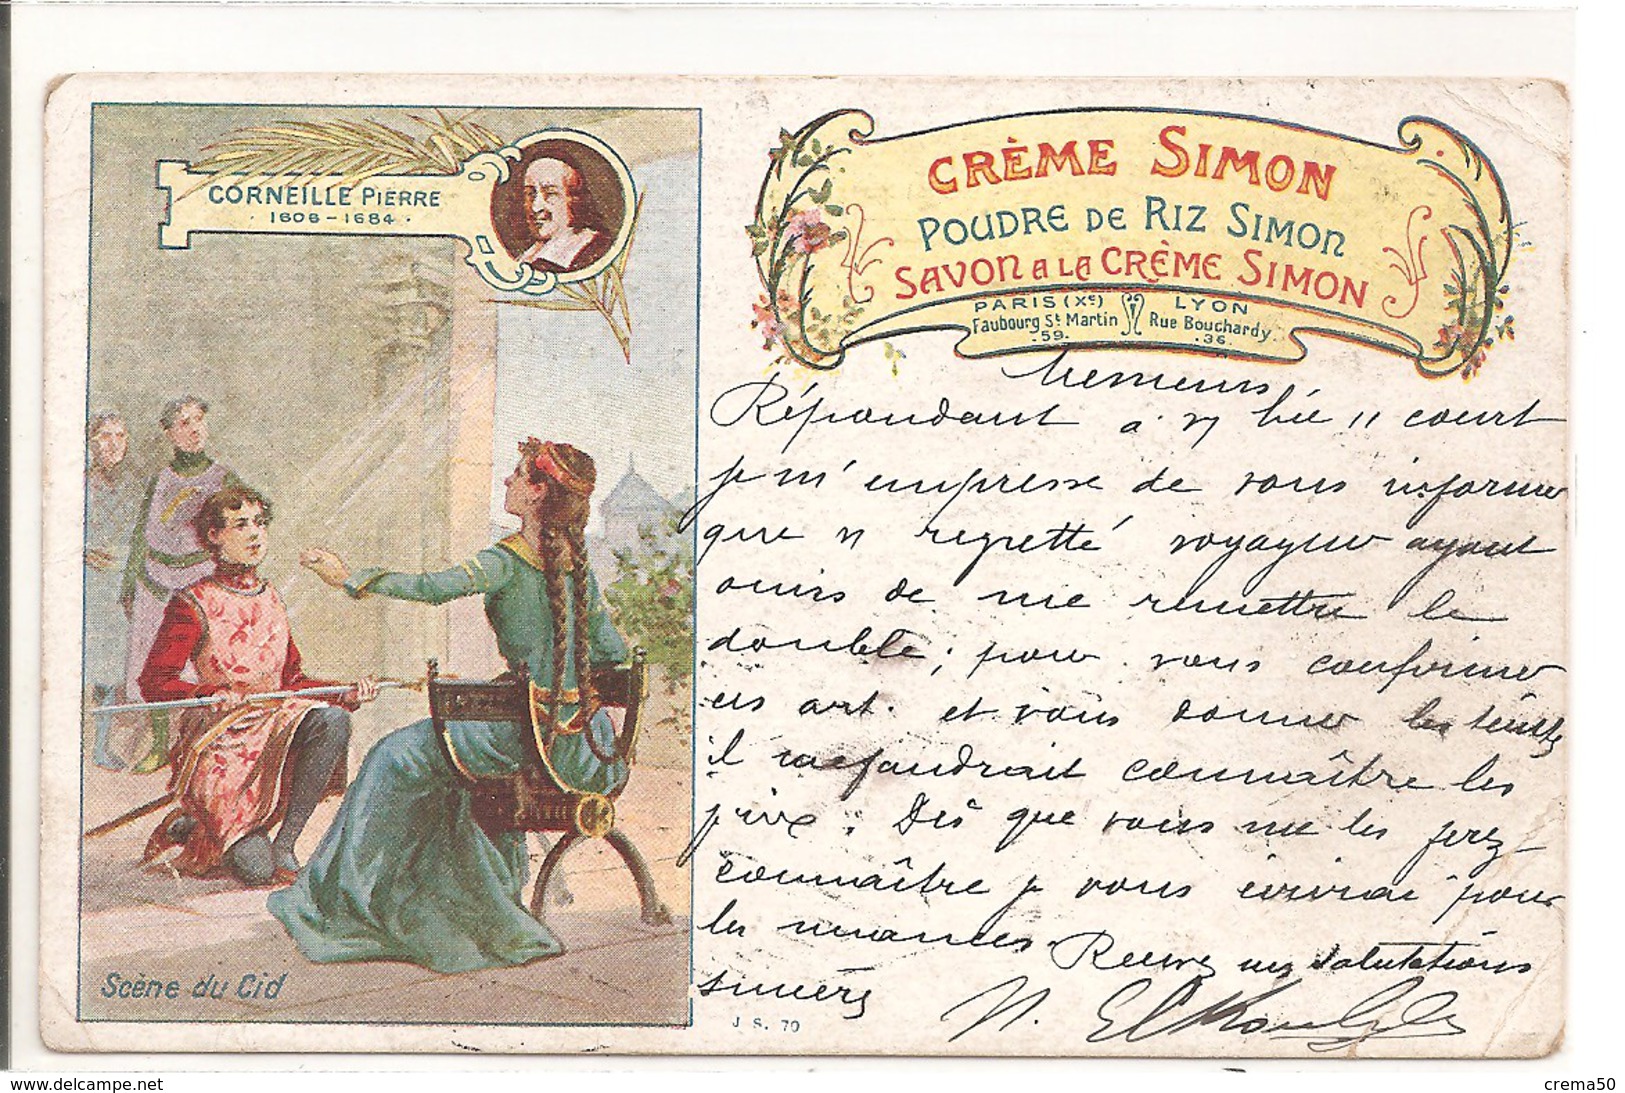 CORNEILLE PIERRE
· 1606-1684 ·
CRÈME SIMON
POUDRE DE RIZ SIMON
SAVON A LA CRÈME SIMON
PARIS (Xe) LYON
Faubourg St Martin Rue Bouchardy
.59. .36.
Messieurs
Répondant à v/ 11 court
je m'empresse de vous informer
que v/ regretté voyageur ayant
omis de me remettre le
double; pour vous confirmer
ces art. et vous donner les teintes
il me faudrait connaître les
prix. Dès que vous me les ferez
connaître je vous écrirai pour
les nuances. Recevez mes salutations
sincères
Scène du Cid
J. S. 70
delcampe.net
crema50